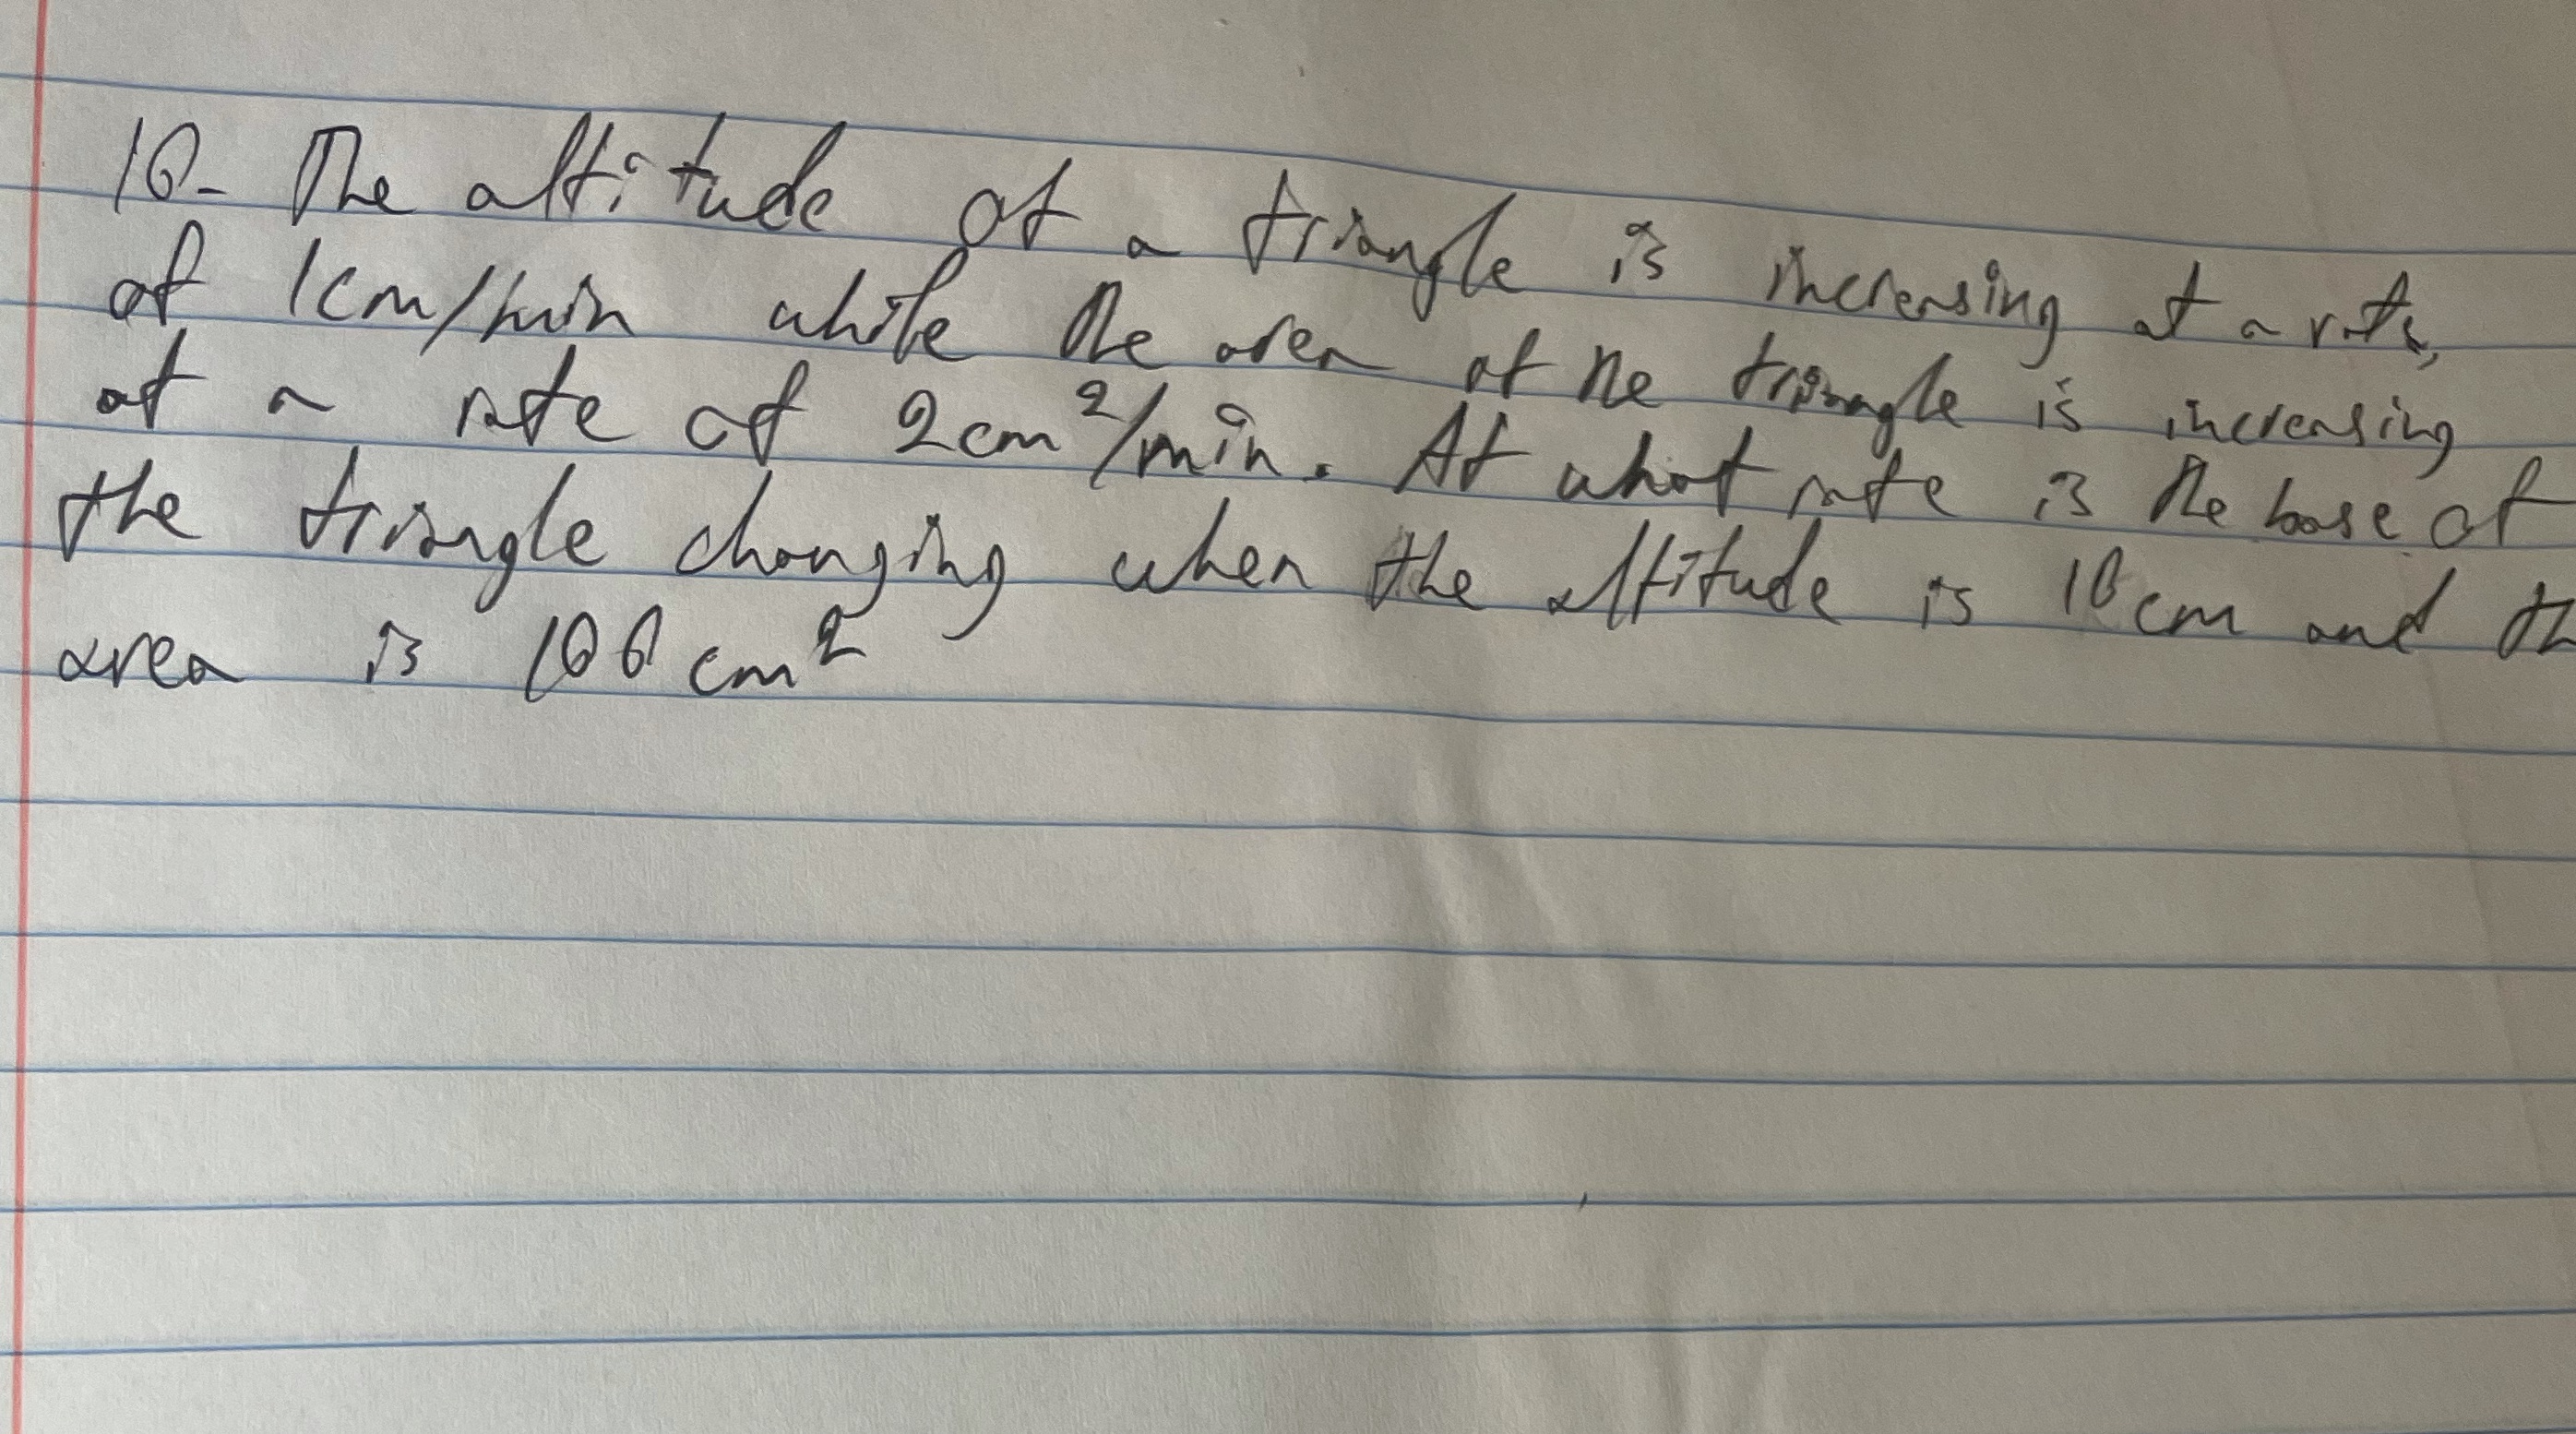 10- The altitude of a triangle is increasing at a rate,
of 1cm/min while the area of the triangle is increasing
at a rate of 2cm²/min. At what rate is the base of
the triangle changing when the altitude is 10cm and th
area is 100 cm²